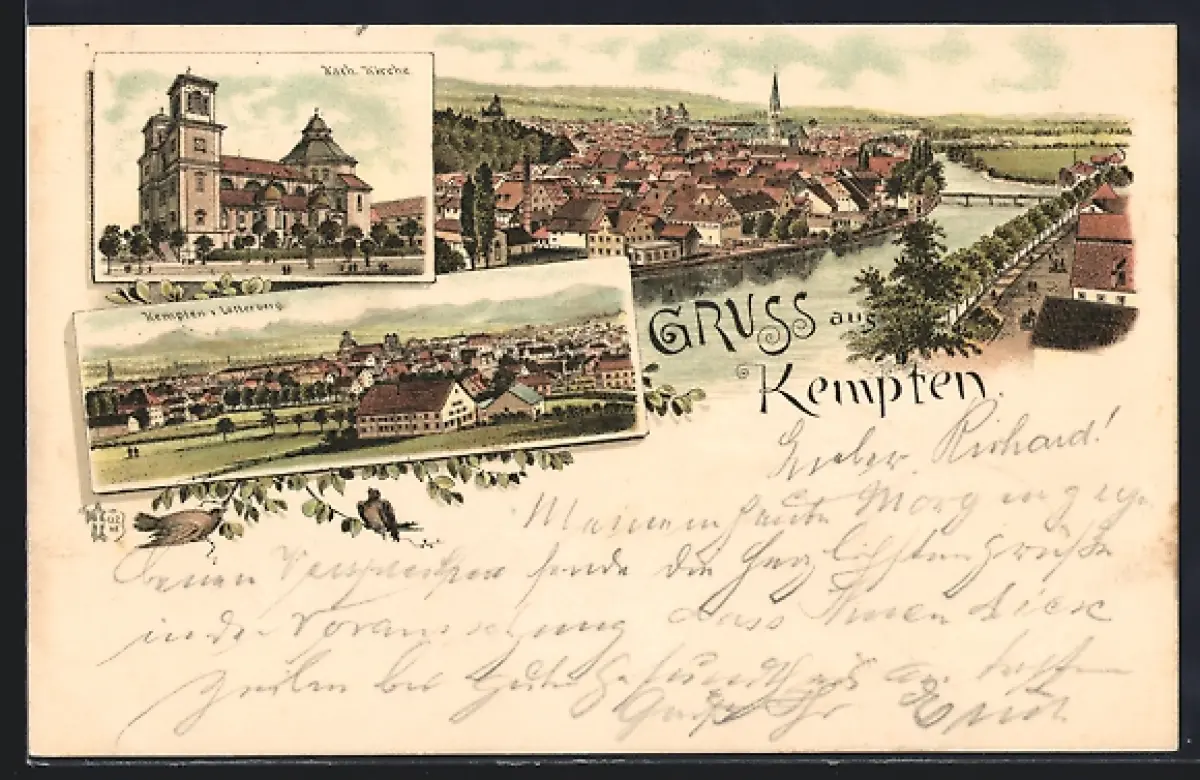 Kath. Kirche
Kempten v. Lotterberg.
GRUSS aus
Kempten.
Lieber Richard!
Meinem heute Morgen gege
benen Versprechen sende die herzlichsten Grüße
in der Voraussetzung dass Ihnen diese
Zeilen bei Gute Gesundheit an treffen
Grüße Ihr